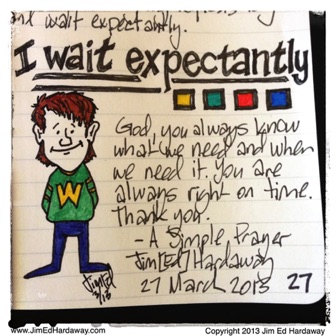 and wait expectantly.
I wait expectantly
God, you always know
what we need and when
we need it. you are
always right on time.
Thank you.
- A Simple Prayer
Jim [Ed] Hardaway
27 March 2013 27
W
JimEd
3/13
www.JimEdHardaway.com Copyright 2013 Jim Ed Hardaway